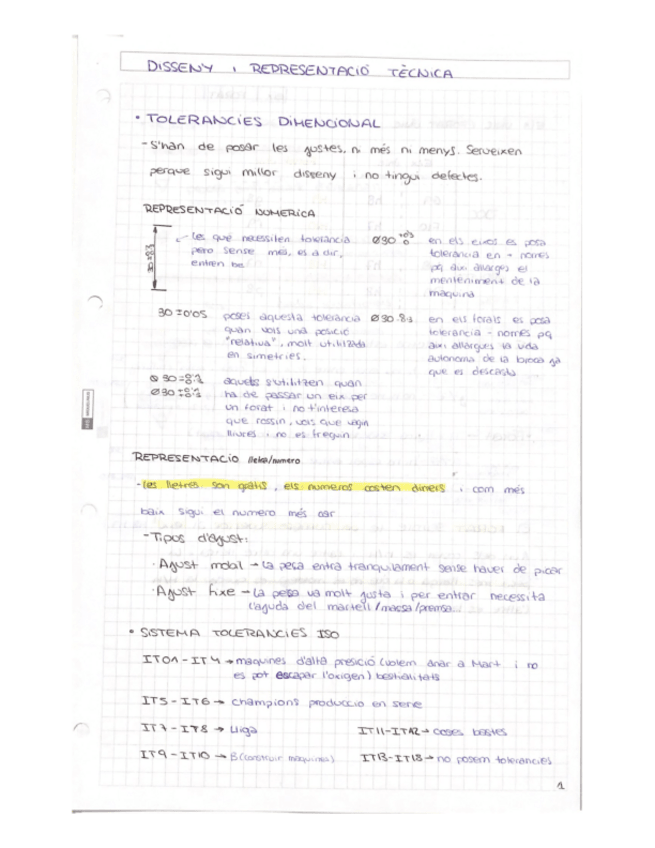 DISSENY i REPRESENTACIÓ TÈCNICA
• TOLERANCIES DIMENCIONAL
- S'han de posar les justes, ni més ni menys. Serveixen
perque sigui millor disseny i no tingui defectes.
REPRESENTACIÓ NUMERICA
les que necessiten tolerància
pero sense més, es a dir,
entren be
Ø30 +0'3 0
en els eixos es posa
tolerancia en - només
pq aixi allargues el
menteniment de la
maquina
30 ±0'05
poses aquesta tolerància
quan vols una posició
"relativa", molt utilitzada
en simetries.
Ø30
en els forats es posa
tolerancia - només pq
aixi allargues la vida
autonoma de la broca ja
que es descasta
Ø30
Ø30
aquets s'utilitzen quan
ha de passar un eix per
un forat i no t'interesa
que rossin, vols que vagin
lliures i no es freguin
REPRESENTACIO lletra/numero
- les lletres son gratis, els numeros costen diners i com més
baix sigui el numero més car
- Tipos d'ajust:
· Ajust mobil → La peça entra tranquilament sense haver de picar
· Ajust fixe → La peça va molt justa i per entrar necessita
l'ajuda del martell/massa/premsa...
• SISTEMA TOLERANCIES ISO
IT01-IT4 → maquines d'alta presició (volem anar a Mart i no
es pot escapar l'oxigen) bestialitats
IT5-IT6 → champions produccio en serie
IT7-IT8 → Lliga
IT11-IT12 → coses bastes
IT9-IT10 → B (construir maquines)
IT13-IT18 → no posem tolerancies
1